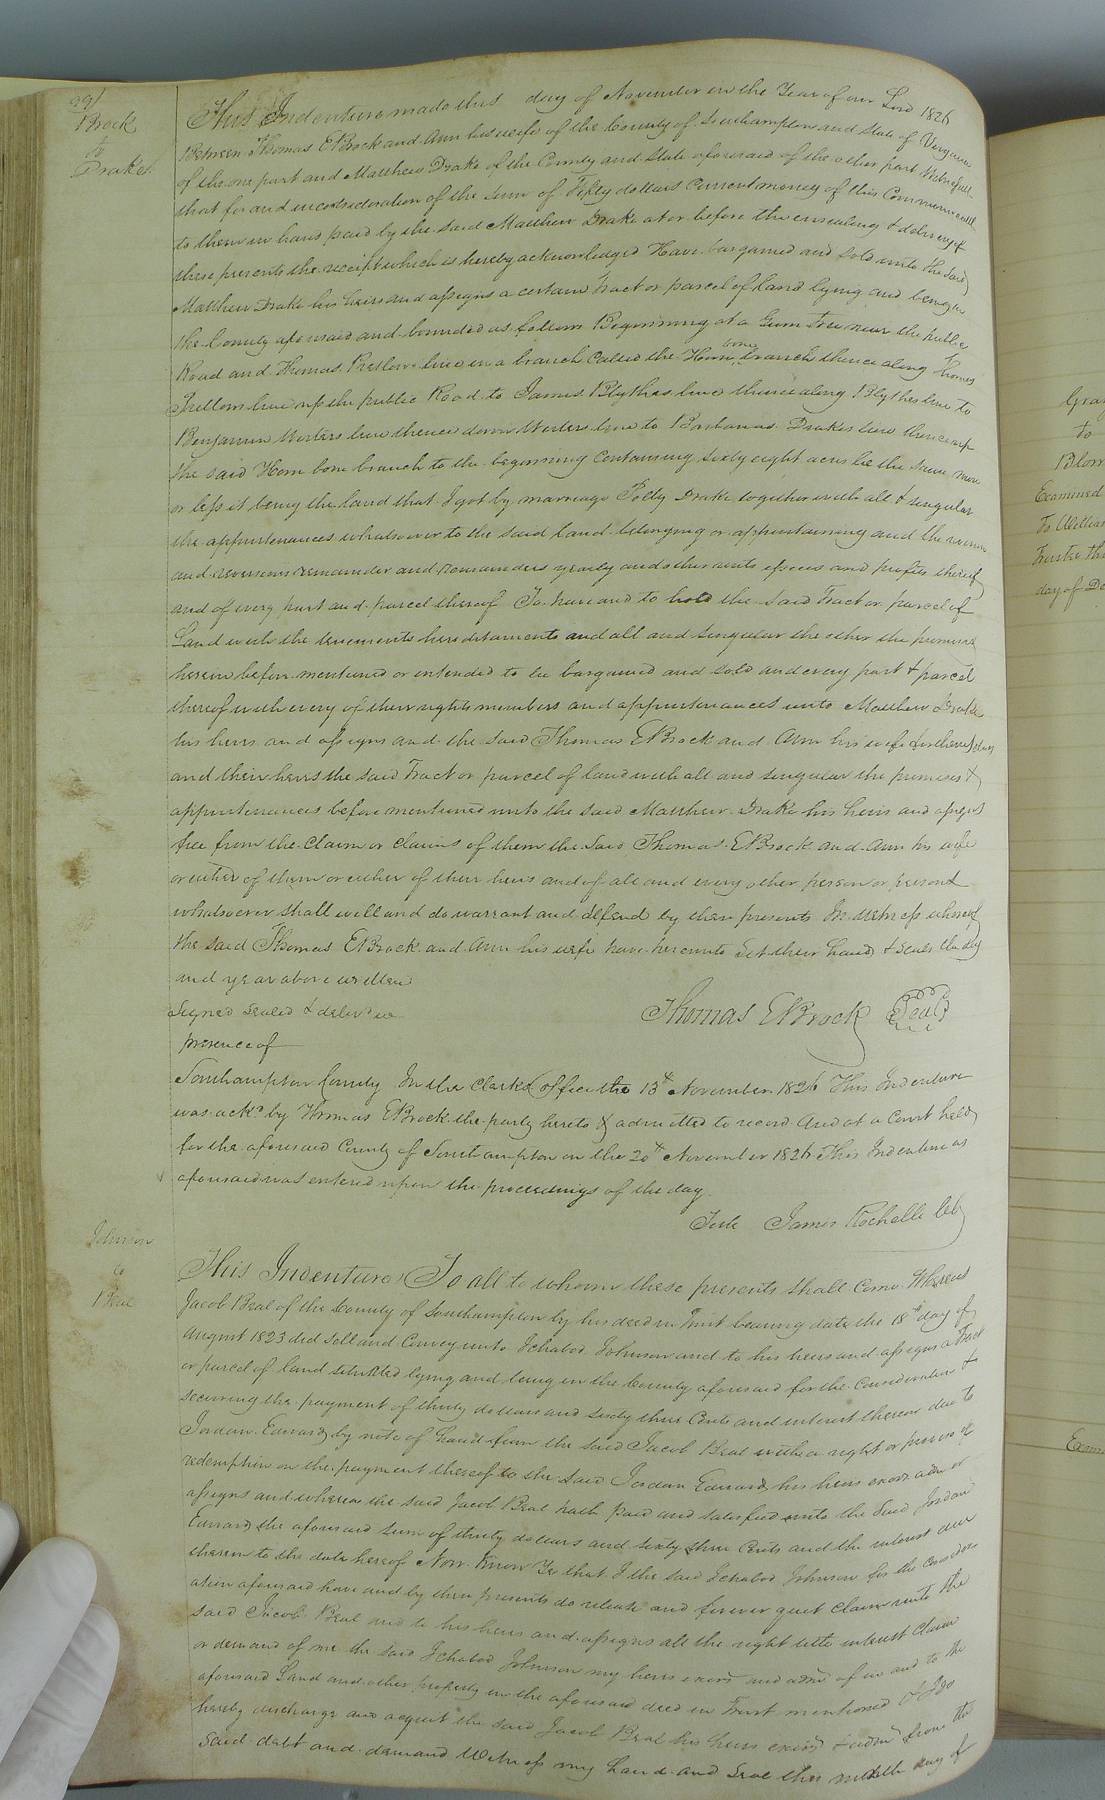 291
Brock
to
Drake
This Indenture made this day of November in the Year of our Lord 1826
Between Thomas E Brock and Ann his wife of the County of Southampton and State of Virginia
of the one part and Matthew Drake of the County and State aforesaid of the other part Witnesseth
that for and in consideration of the sum of Fifty dollars Current money of this Commonwealth
to them in hand paid by the said Matthew Drake at or before the ensealing & delivery of
these presents the receipt which is hereby acknowledged Have bargained and Sold unto the Said
Matthew Drake his heirs and assigns a certain Tract or parcel of Land lying and being in
the County aforesaid and bounded as follows Beginning at a Gum Tree near the public
Road and Thomas Pretlows line in a branch Called the Horn bone branch thence along Thomas
Pretlows line up the public Road to James Blythes line thence along Blythes line to
Benjamin Worters line thence down Worters line to Barbaras Drakes line thence up
the said Horn bone branch to the beginning Containing sixty eight acres be the same more
or less it being the land that I got by marriage Polly Drake together with all & singular
the appurtenances whatsoever to the said Land belonging or appurtaining and the reversion
and reversions remainder and remainders yearly and other rents issues and profits thereof
and of every part and parcel thereof To have and to hold the said Tract or parcel of
Land with the tenements hereditaments and all and singular the other the premises
herein before mentioned or intended to be bargained and sold and every part & parcel
thereof with every of their rights members and appurtenances unto Matthew Drake
his heirs and assigns and the said Thomas E Brock and Ann his wife for themselves
and their heirs the said Tract or parcel of land with all and singular the premises &
appurtenances before mentioned unto the said Matthew Drake his heirs and assigns
free from the Claim or Claims of them the said Thomas E Brock and Ann his wife
or either of them or either of their heirs and of all and every other person or persons
whatsoever shall will and do warrant and defend by these presents In Witness whereof
the said Thomas E Brock and Ann his wife have hereunto Set their hands & Seals the day
and year above written
Signed sealed & deliv'd in
presence of
Thomas E Brock Seal
Southampton County In the Clerks Office the 13th November 1826 This Indenture
was ackd by Thomas E Brock the party hereto & admitted to record And at a Court held
for the aforesaid County of Southampton on the 20th November 1826 This Indenture as
aforesaid was entered upon the proceedings of the day
Teste James Rochelle Clk
Johnson
to
Beal
This Indenture To all to whom these presents shall Come Whereas
Jacob Beal of the County of Southampton by his deed in Trust bearing date the 18th day of
August 1823 did sell and Convey unto Ichabod Johnson and to his heirs and assigns a Tract
or parcel of land situated lying and being in the County aforesaid for the Consideration &
securing the payment of thirty dollars and sixty three Cents and interest thereon due to
Jordan Edwards by note of hand from the said Jacob Beal with a right or power of
redemption on the payment thereof to the said Jordan Edwards his heirs exors adm or
assigns and whereas the said Jacob Beal hath paid and satisfied unto the Said Jordan
Edwards the aforesaid sum of thirty dollars and sixty three Cents and the interest due
thereon to the date hereof Now Know Ye that I the said Ichabod Johnson for the consider
ation aforesaid have and by these presents do release and forever quit Claim unto the
said Jacob Beal and to his heirs and assigns all the right title interest Claim
or demand of me the said Ichabod Johnson my heirs exors and adm of in and to the
aforesaid Land and other property in the aforesaid deed in Trust mentioned & I do
hereby discharge and acquit the said Jacob Beal his heirs exors & adm from the
said debt and demand Witness my hand and Seal this day of
Gray
to
Examined
To William
Trustee
day of De
Exam